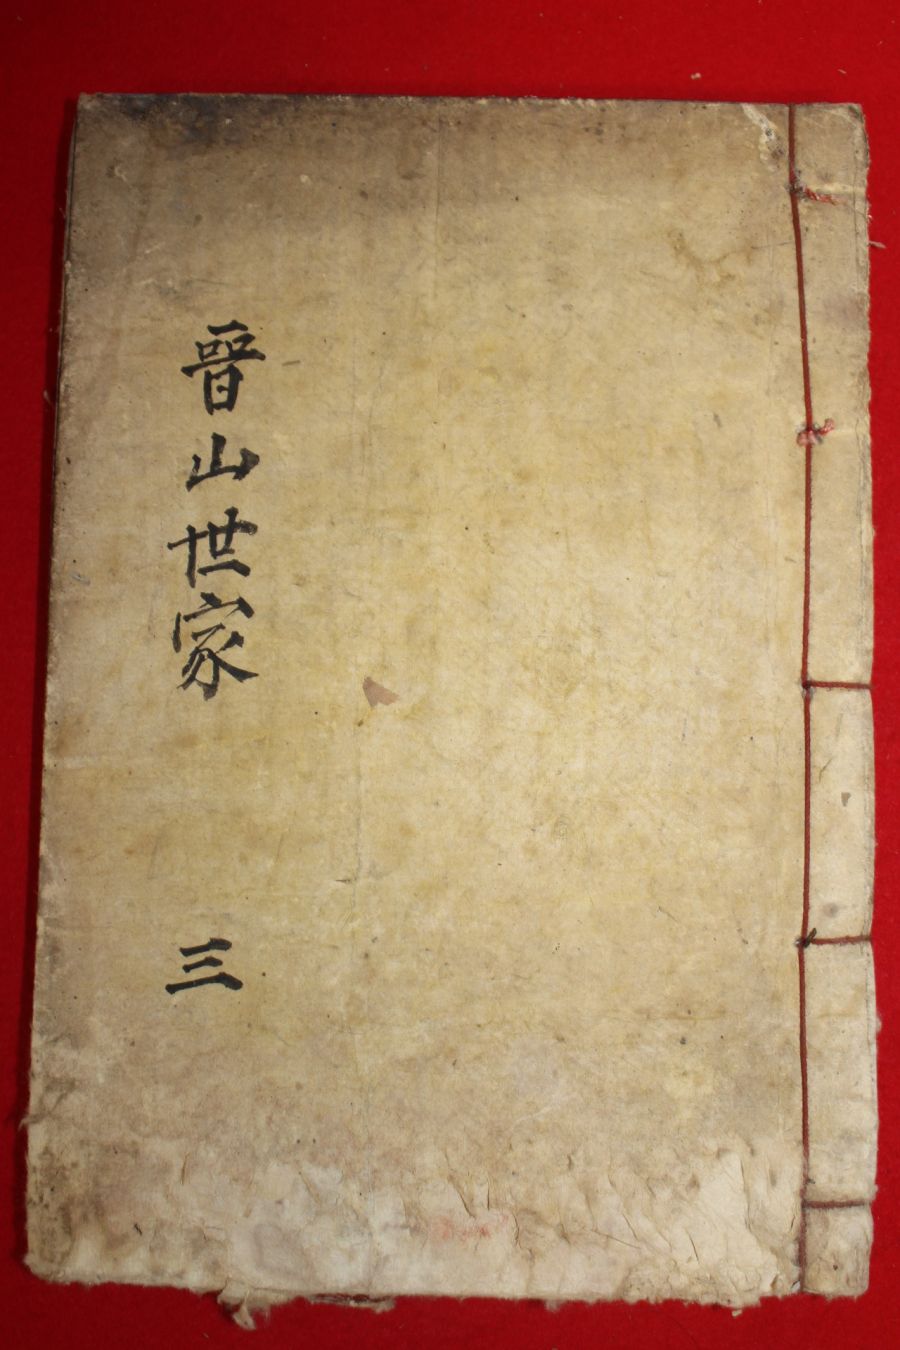 晋山世家
三